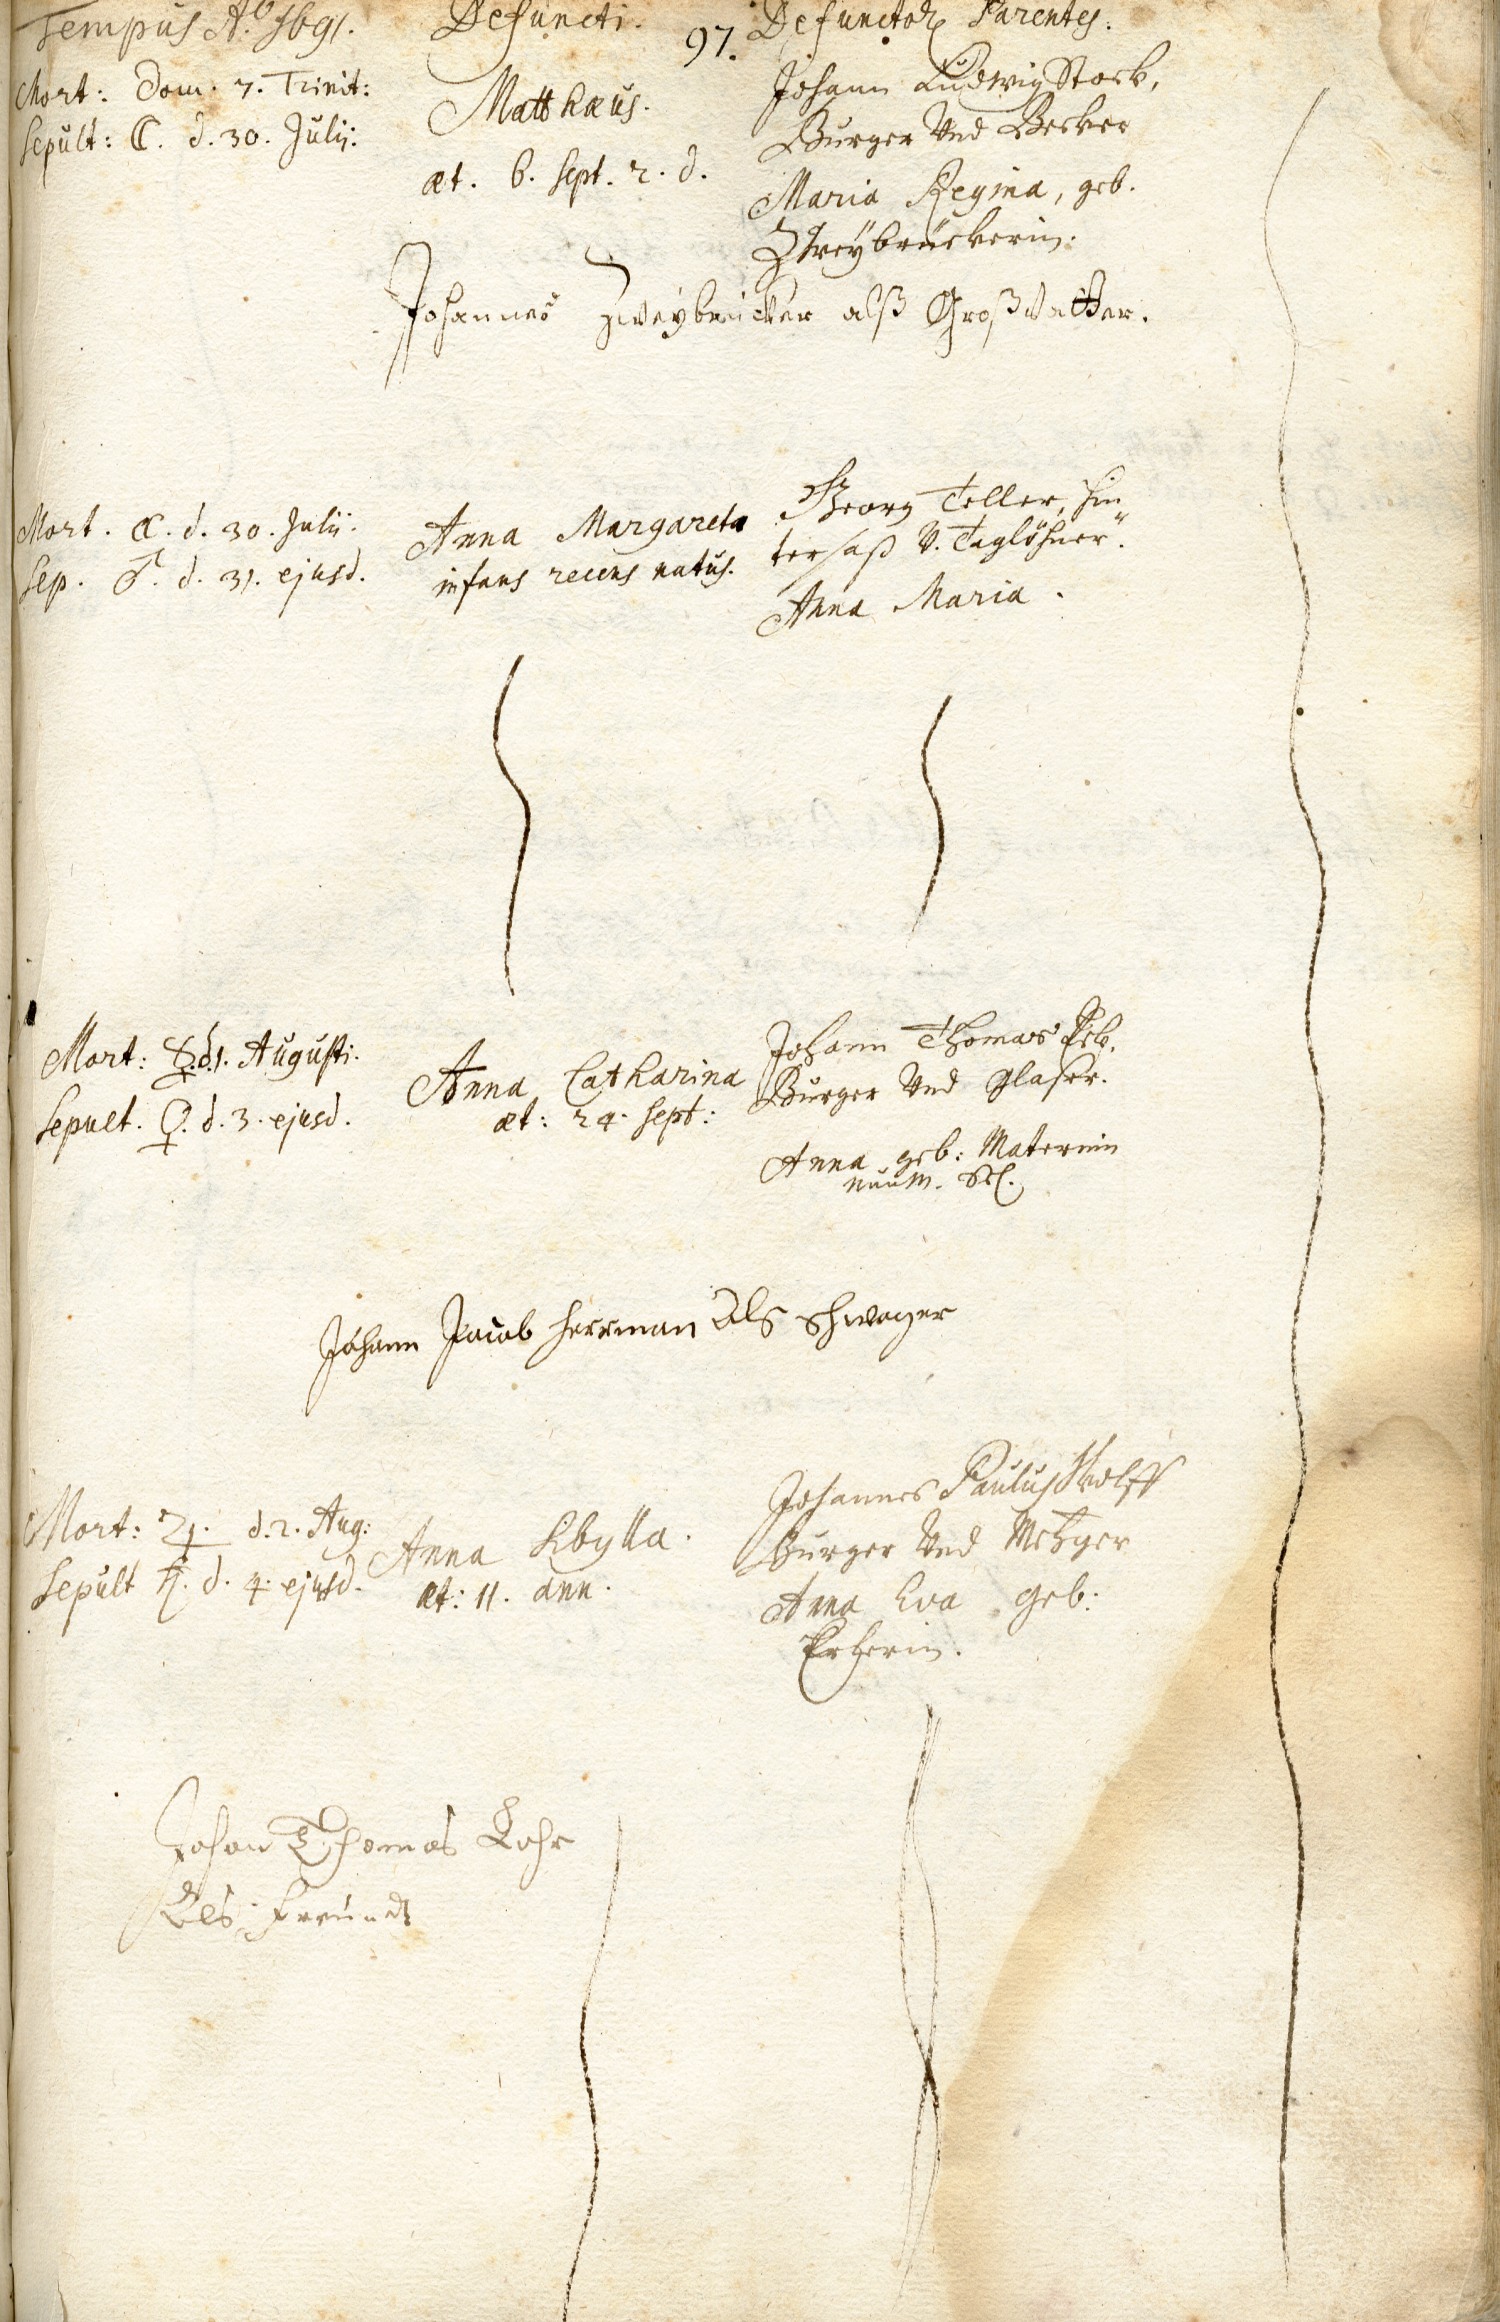 Tempus Aō. 1691.
Defuncti.
97.
Defunctor. Parentes.
Mort: Dom. 7. Trinit:
Sepult: ☾. d. 30. Julij:
Matthæus.
æt. 6. sept. 2. d.
Johann Ludwig Stock,
Burger Vnd Becker
Maria Regina, geb.
Zweÿbrückerin.
Johannes Zweÿbrücker alß Großvatter.
Mort. ☾. d. 30. Julij.
Sep. ♂. d. 31. ejusd.
Anna Margareta
infans recens natus.
Georg Teller, Hin
tersaß V. Taglöhner.
Anna Maria.
Mort: ☿. d. 1. Augusti.
Sepult. ♀. d. 3. ejusd.
Anna Catharina
æt: 24. sept:
Johann Thomas
Burger Vnd Glaser.
Anna geb: Maternin
nunm. Sel.
Johann Jacob Herrman Als Schwager
Mort: ♃. d. 2. Aug:
Sepult ♄. d. 4. ejusd.
Anna Sibylla.
æt: 11. ann.
Johannes Paulus Wolff
Burger Vnd Metzger
Anna Eva geb:
Johan Thomas Lohr
Als Freundt